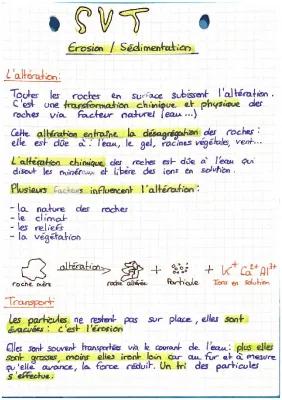 SVT
Erosion / Sédimentation
L'altération:
Toutes les roches en surface subissent l'altération.
C'est une transformation chimique et physique des
roches via facteur naturel (eau...)
Cette altération entraîne la désagrégation des roches:
elle est dûe à: l'eau, le gel, racines végétales, vent...
L'altération chimique des roches est dûe à l'eau qui
disout les minéraux et libère des ions en solution.
Plusieurs facteurs influencent l'altération:
- la nature des roches
- le climat
- les reliefs
- la végétation
altération → + + K⁺ Ca²⁺ Al³⁺
roche mère roche altérée Particule Ions en solution
Transport
Les particules ne restent pas sur place, elles sont
évacuées: c'est l'érosion
Elles sont souvent transportées via le courant de l'eau: plus elles
sont grosses, moins elles iront loin car au fur et à mesure
qu'elle avance, la force réduit. Un tri des particules
s'effectue.